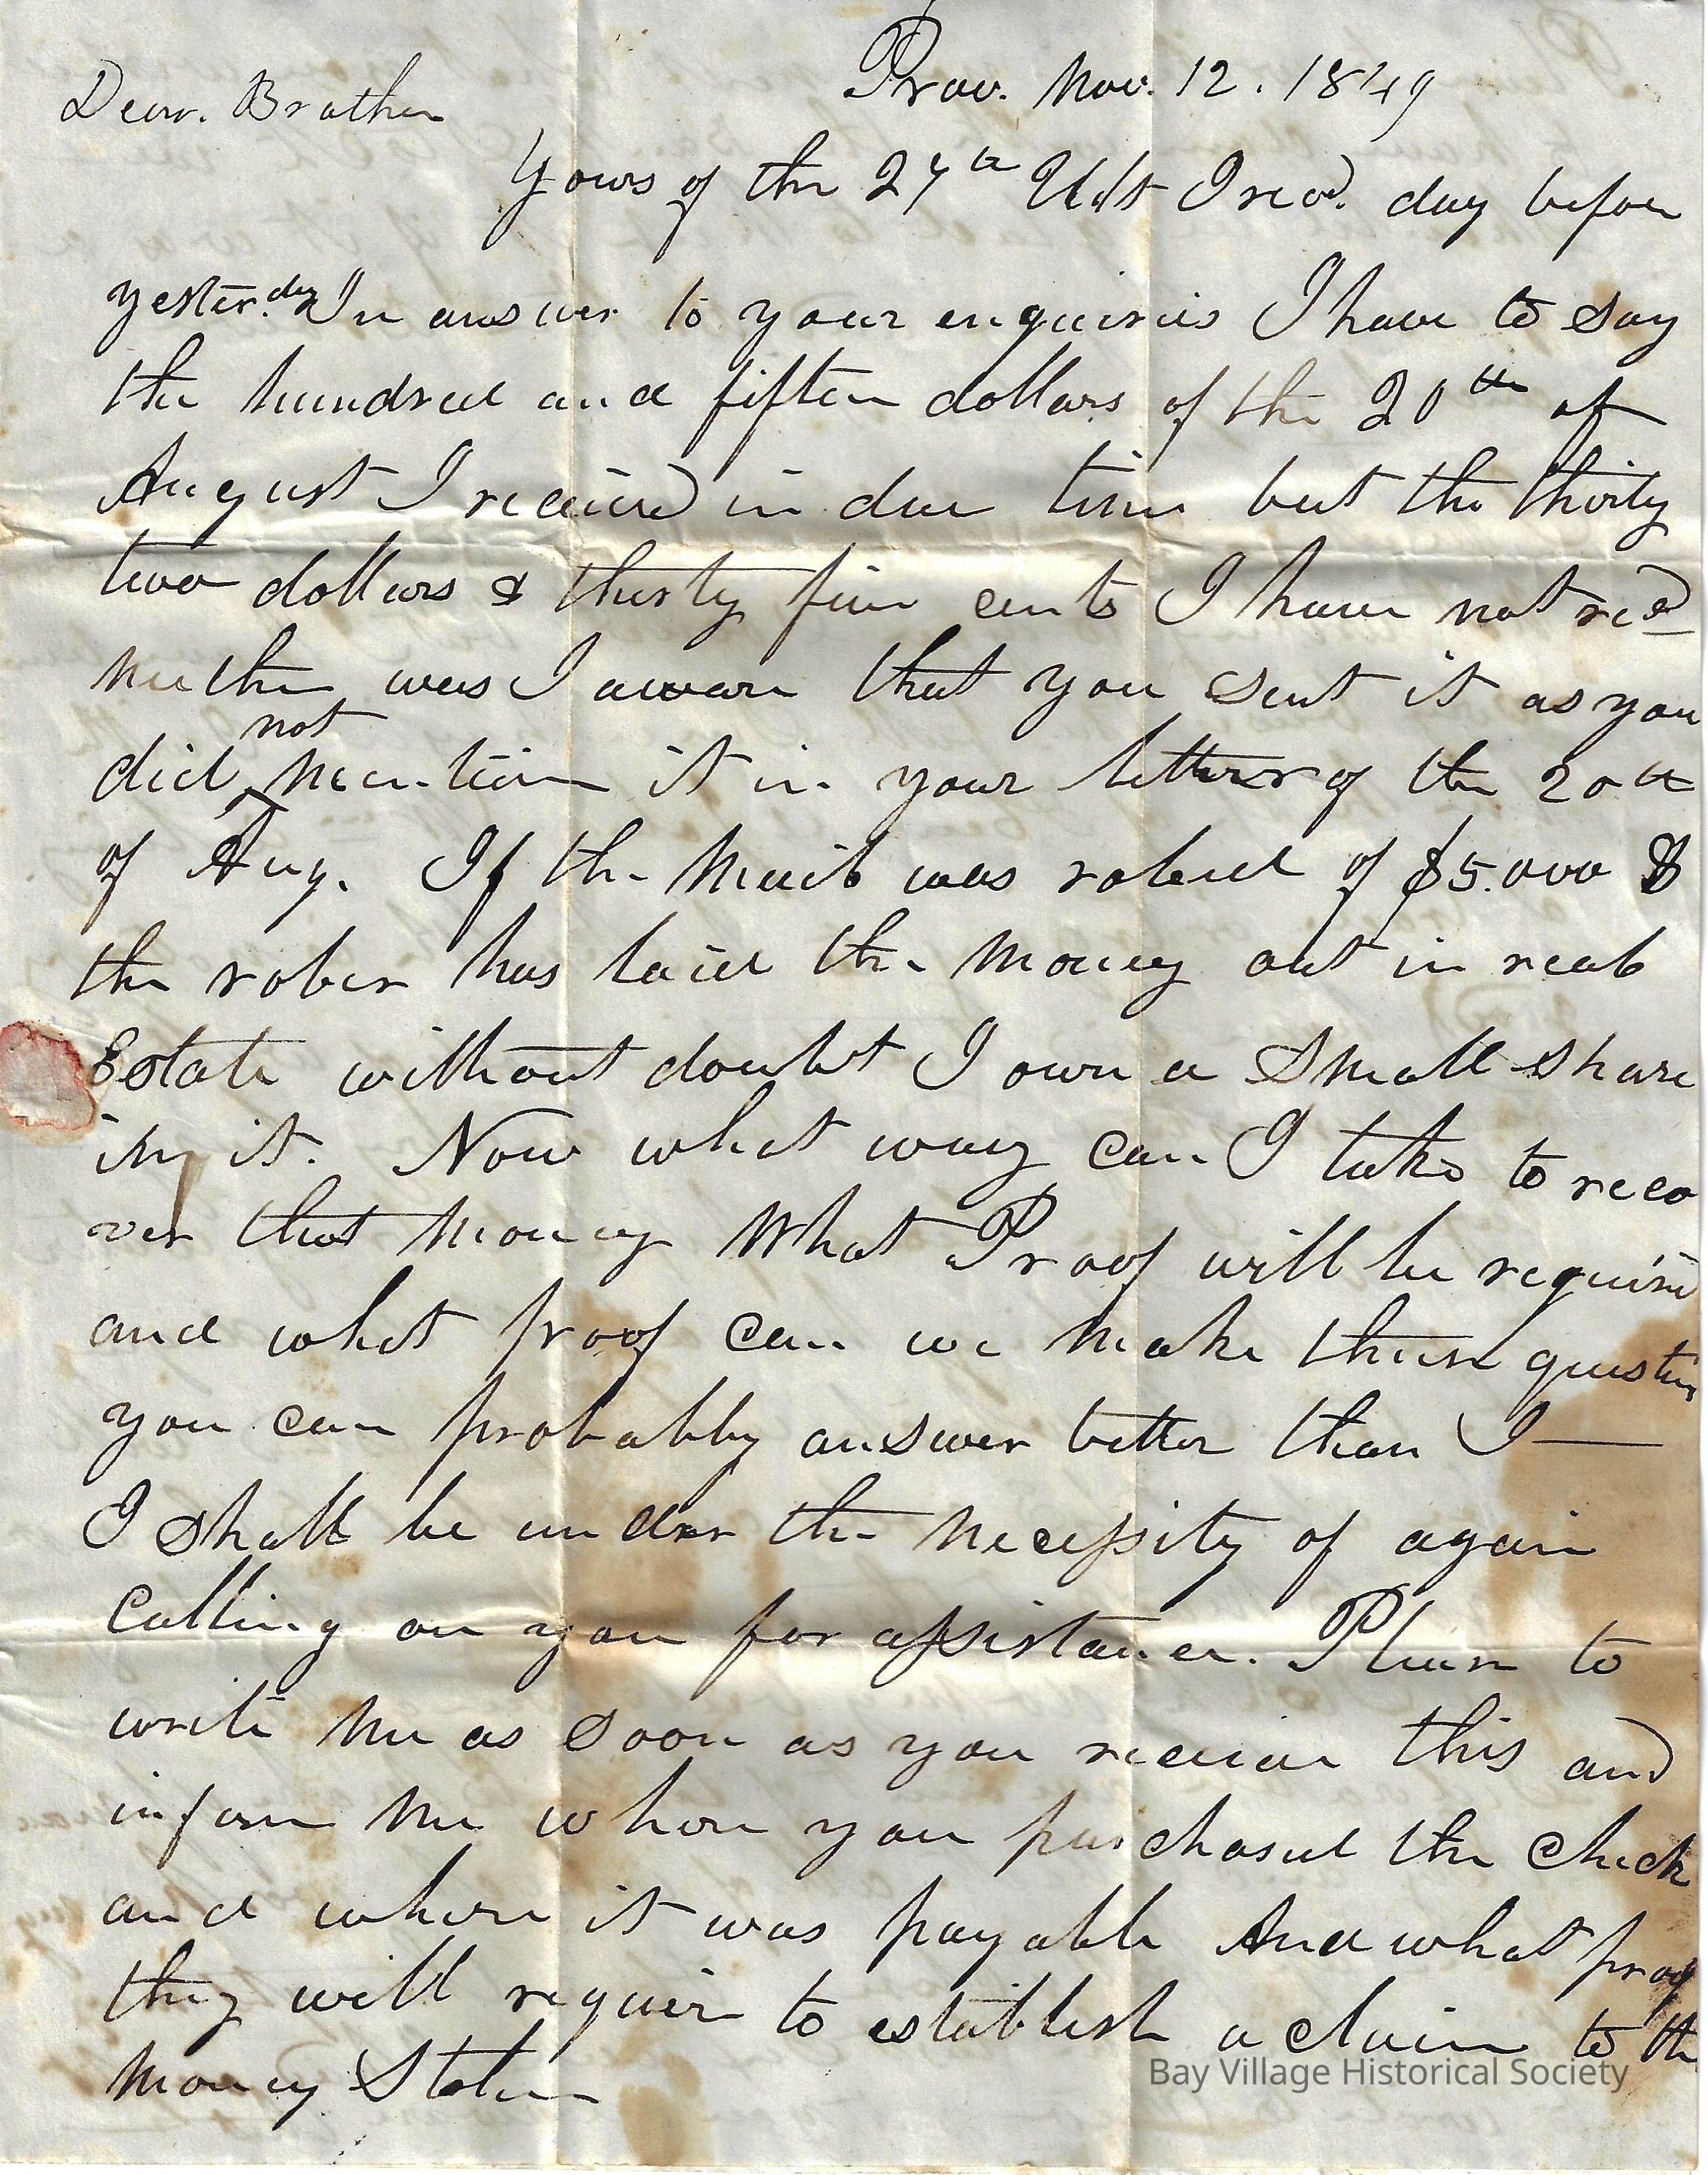 Prov. Nov. 12. 1849
Dear. Brother
Yours of the 27th Ult I recd. day before
yester.day In answer to your enquiries I have to say
the hundred and fifteen dollars of the 20th of
August I received in due time but the thirty
two dollars & thirty five cents I have not recd
neither was I aware that you sent it as you
did not mention it in your letter of the 20th
of Aug. If the Mail was robed of $5.000 &
the rober has laid the money out in real
Estate without doubt I own a small share
in it. Now what way can I take to reco
ver that money What Proof will be required
and what proof can we make these questions
you can probably answer better than I—
I shall be under the necessity of again
Calling on you for assistance. Please to
write me as soon as you receive this and
inform me whom you purchased the Check
and where it was payable And what proof
they will require to establish a claim to the
money Stolen
Bay Village Historical Society